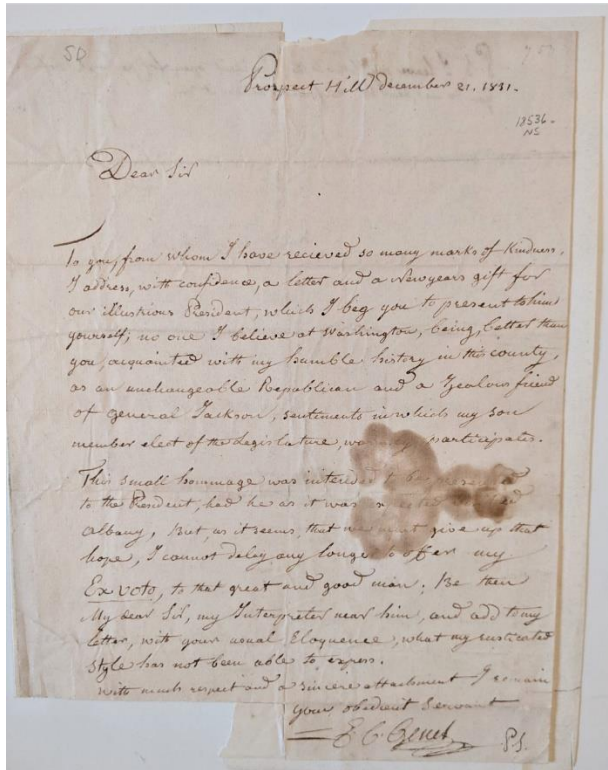 SD
Prospect Hill December 21. 1831.
18536-
NS
Dear Sir
To you, from whom I have recieved so many marks of Kindness,
I address, with confidence, a letter and a new years gift for
our illustrious President, which I beg you to present to him
yourself; no one I believe at Washington, being, better than
you, acquainted with my humble history in this county,
as an unchangeable Republican and a Zealous friend
of general Jackson, sentiments in which my son
member elect of the Legislature, participates.
This small hommage was intended to be
to the President, had he as it was
albany, But, as it seems, that we must give up that
hope, I cannot delay any longer to offer my
Ex voto, to that great and good man; Be then
My dear Sir, my Interpreter near him, and add to my
letter, with your usual Eloquence, what my rusticated
style has not been able to express.
with much respect and a sincere attachment I remain
your obedient Servant
E. C. Genet
P.S.